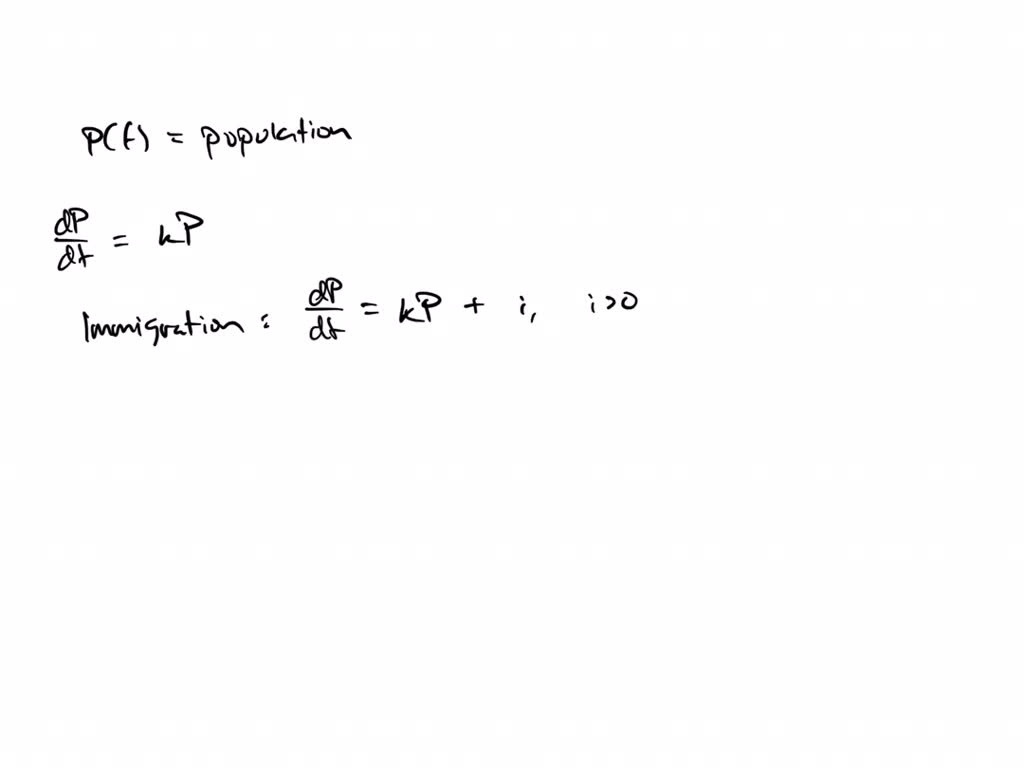 P(t) = population
dP/dt = kP
Immigration : dP/dt = kP + i, i>0